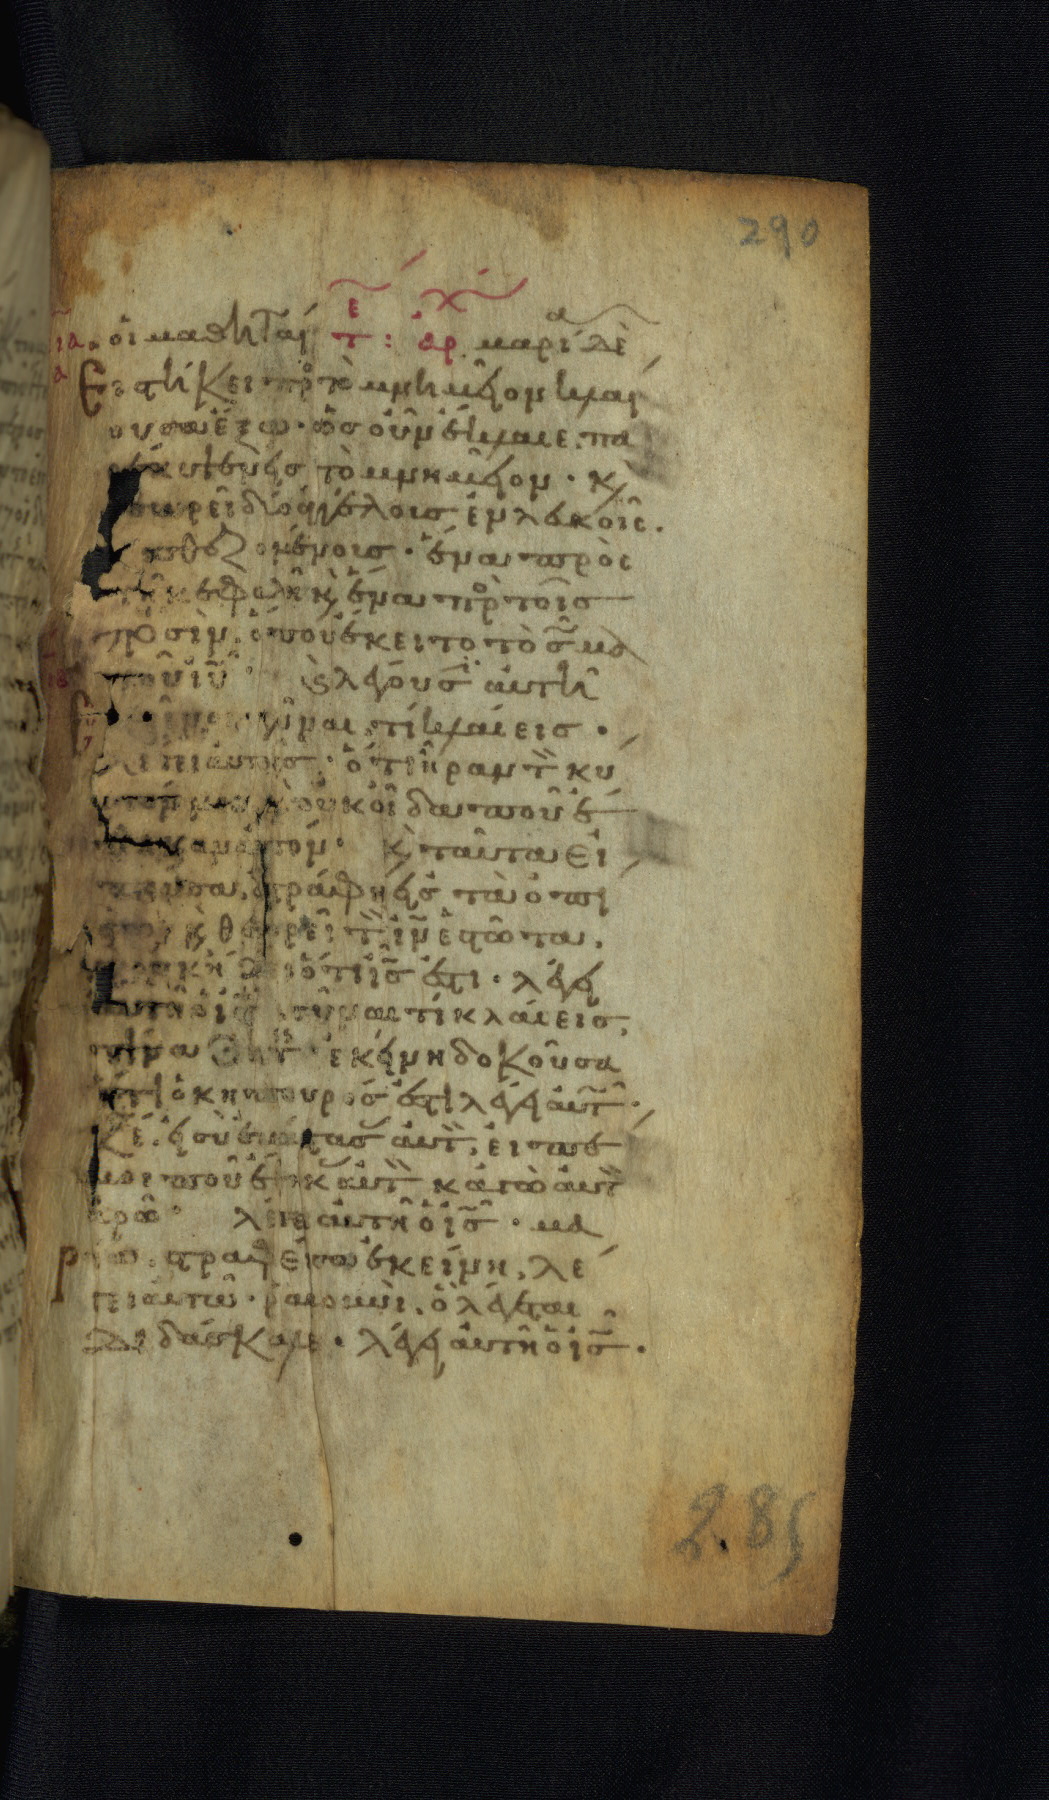 290
οἱ μαθηταί τ: αρ μαρία δὲ
Εἱστήκει πρ τὸ μνημεῖον κλαί
ουσα ἔξω· ὡσ οὖν ἔκλαιε. πα
τὸ μνημεῖον· κ
θεωρεῖ δύο ἀγγέλουσ ἐν λευκοῖσ.
καθεζομένουσ· ἕνα πρὸσ
τῆ κεφαλῆ κ ἕνα πρ τοῖσ
ποσὶν. ὅπου ἔκειτο τὸ σῶμα
τοῦ ιυ λέγουσι αὐτῆ
γύναι τί κλαίεισ·
λέγει αὐτοῖσ· ὅτι ἦραν τ κυ
οὐκ οἶδα ποῦ ἔ
θηκαν αὐτόν· κ ταῦτα εἰ
ποῦσα ἐστράφη εἰσ τὰ ὀπί
σω κ θεωρεῖ τ ιν ἑστῶτα.
ὅτι ισ ἐστι· λέγει
αὐτῆ ὁ ισ γύναι τί κλαίεισ,
τίνα ζητ ἐκείνη δοκοῦσα
ὅτι ὁ κηπουρόσ ἐστι λέγει αὐτ·
κε. εἰ σὺ ἐβάστασ αὐτ, εἰπέ
μοι ποῦ ἔθηκ αὐτ κἀγὼ αὐτ
ἀρῶ λέγει αὐτῆ ὁ ισ· μα
ρία. στραφεῖσα ἐκείνη, λέ
γει αὐτῶ· ραβουνι, ὃ λέγεται
διδάσκαλε· λέγει αὐτῆ ὁ ισ·
285